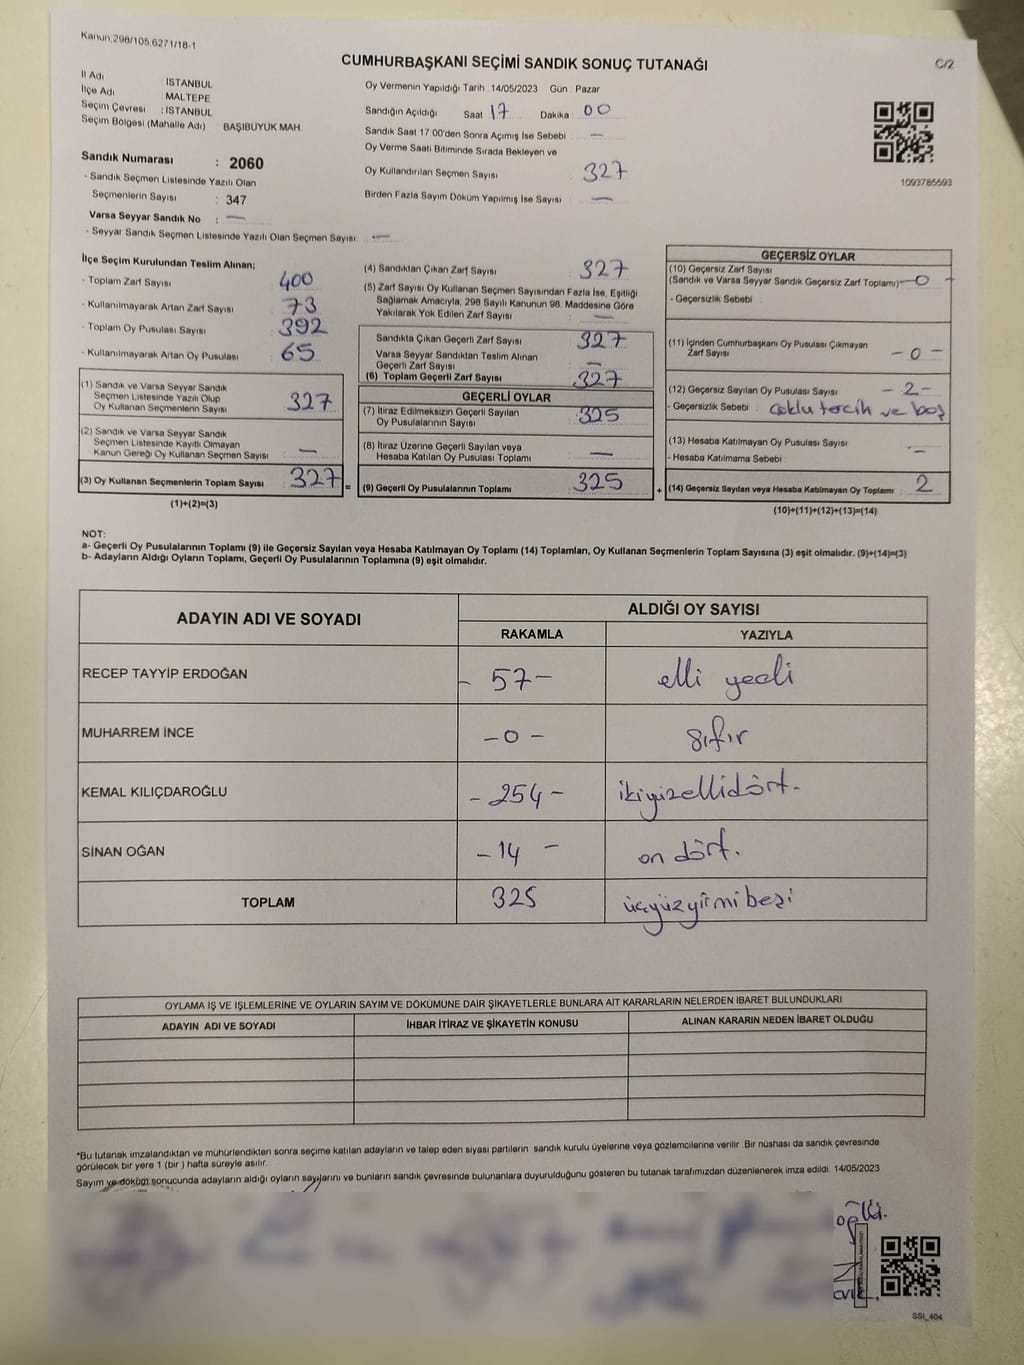 Kanun;298/105,6271/18-1
CUMHURBAŞKANI SEÇİMİ SANDIK SONUÇ TUTANAĞI
C/2
İl Adı : İSTANBUL
İlçe Adı : MALTEPE
Seçim Çevresi : İSTANBUL
Seçim Bölgesi (Mahalle Adı) : BAŞIBÜYÜK MAH
Sandık Numarası : 2060
- Sandık Seçmen Listesinde Yazılı Olan
Seçmenlerin Sayısı : 347
Varsa Seyyar Sandık No : —
- Seyyar Sandık Seçmen Listesinde Yazılı Olan Seçmen Sayısı : —
Oy Vermenin Yapıldığı Tarih 14/05/2023 Gün : Pazar
Sandığın Açıldığı Saat 17 Dakika 00
Sandık Saat 17:00'den Sonra Açımış İse Sebebi : —
Oy Verme Saati Bitiminde Sırada Bekleyen ve
Oy Kullandırılan Seçmen Sayısı : 327
Birden Fazla Sayım Döküm Yapılmış İse Sayısı : —
1093785593
İlçe Seçim Kurulundan Teslim Alınan;
- Toplam Zarf Sayısı : 400
- Kullanılmayarak Artan Zarf Sayısı : 73
- Toplam Oy Pusulası Sayısı : 392
- Kullanılmayarak Artan Oy Pusulası : 65
(1) Sandık ve Varsa Seyyar Sandık
Seçmen Listesinde Yazılı Olup
Oy Kullanan Seçmenlerin Sayısı : 327
(2) Sandık ve Varsa Seyyar Sandık
Seçmen Listesinde Kayıtlı Olmayan
Kanun Gereği Oy Kullanan Seçmen Sayısı : —
(3) Oy Kullanan Seçmenlerin Toplam Sayısı : 327 =
(1)+(2)=(3)
(4) Sandıktan Çıkan Zarf Sayısı : 327
(5) Zarf Sayısı Oy Kullanan Seçmen Sayısından Fazla İse, Eşitliği
Sağlamak Amacıyla, 298 Sayılı Kanunun 98. Maddesine Göre
Yakılarak Yok Edilen Zarf Sayısı : —
Sandıkta Çıkan Geçerli Zarf Sayısı : 327
Varsa Seyyar Sandıktan Teslim Alınan
Geçerli Zarf Sayısı : —
(6) Toplam Geçerli Zarf Sayısı : 327
GEÇERLİ OYLAR
(7) İtiraz Edilmeksizin Geçerli Sayılan
Oy Pusulalarının Sayısı : 325
(8) İtiraz Üzerine Geçerli Sayılan veya
Hesaba Katılan Oy Pusulası Toplamı : —
(9) Geçerli Oy Pusulalarının Toplamı : 325 +
GEÇERSİZ OYLAR
(10) Geçersiz Zarf Sayısı
(Sandık ve Varsa Seyyar Sandık Geçersiz Zarf Toplamı) -0-
- Geçersizlik Sebebi :
(11) İçinden Cumhurbaşkanı Oy Pusulası Çıkmayan
Zarf Sayısı -0-
(12) Geçersiz Sayılan Oy Pusulası Sayısı -2-
- Geçersizlik Sebebi : çoklu tercih ve boş
(13) Hesaba Katılmayan Oy Pusulası Sayısı : —
- Hesaba Katılmama Sebebi :
(14) Geçersiz Sayılan veya Hesaba Katılmayan Oy Toplamı : 2
(10)+(11)+(12)+(13)=(14)
NOT:
a- Geçerli Oy Pusulalarının Toplamı (9) ile Geçersiz Sayılan veya Hesaba Katılmayan Oy Toplamı (14) Toplamları, Oy Kullanan Seçmenlerin Toplam Sayısına (3) eşit olmalıdır. (9)+(14)=(3)
b- Adayların Aldığı Oyların Toplamı, Geçerli Oy Pusulalarının Toplamına (9) eşit olmalıdır.
ADAYIN ADI VE SOYADI
ALDIĞI OY SAYISI
RAKAMLA YAZIYLA
RECEP TAYYİP ERDOĞAN - 57 - elli yedi
MUHARREM İNCE - 0 - sıfır
KEMAL KILIÇDAROĞLU - 254 - ikiyüzellidört.
SİNAN OĞAN - 14 - on dört.
TOPLAM 325 üçyüzyirmibeşi
OYLAMA İŞ VE İŞLEMLERİNE VE OYLARIN SAYIM VE DÖKÜMÜNE DAİR ŞİKAYETLERLE BUNLARA AİT KARARLARIN NELERDEN İBARET BULUNDUKLARI
ADAYIN ADI VE SOYADI İHBAR İTİRAZ VE ŞİKAYETİN KONUSU ALINAN KARARIN NEDEN İBARET OLDUĞU
*Bu tutanak imzalandıktan ve mühürlendikten sonra seçime katılan adayların ve talep eden siyasi partilerin sandık kurulu üyelerine veya gözlemcilerine verilir. Bir nüshası da sandık çevresinde
görülecek bir yere 1 (bir ) hafta süreyle asılır.
Sayım ve döküm sonucunda adayların aldığı oyların sayılarını ve bunların sandık çevresinde bulunanlara duyurulduğunu gösteren bu tutanak tarafımızdan düzenlenerek imza edildi. 14/05/2023
SSİ_404